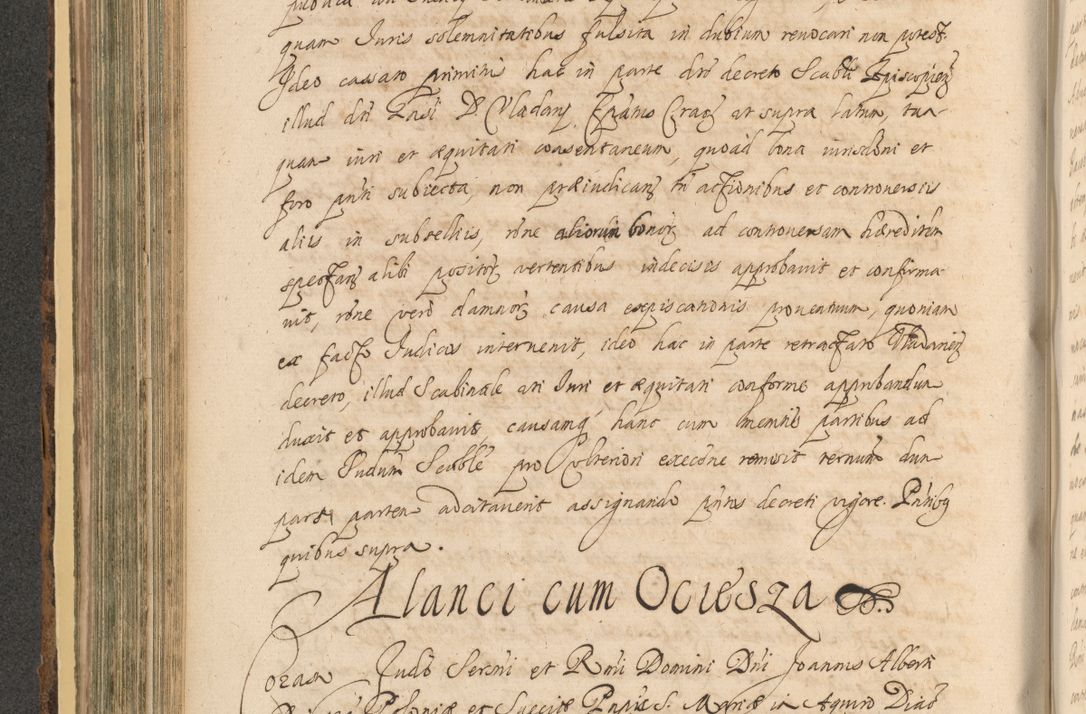 quam Juris solemnitatibus fulsita in dubium revocari non potest
Ideo cassato primitus hac in parte dni decreto Scabli Episcopieñ
illud dni Vladarÿ, Eppatus Crac at supra latum, tan
quam iuri et æquitati consentaneum, quoad bona iurisdõni et
foro pñti subiecta, non præiudicanõ tñ actionibus et controversiis
aliis in subselliis, rõne aliorum bonorõ ad controversam hæreditem
spectanõ alibi positorõ vertentibus indecisis approbavit et confirma
vit, rõne vero damnorõ causa expiscationis proventuum, quoniam
ex facto Judicis intervenit, ideo hac in parte retractato
decreto, illud Scabinale uti Juri et æquitati conforme approbandum
duxit et approbavit, causamq hanc cum membris partibus ad
idem Judum Scable pro Vlteriori execõne remisit ternum dum
pars partem adcitaverit assignando pñtis decreti vigore. Pñtibq
quibus supra.
Alanci cum Ociesza
Coram Judõ Sersmi et Rmi Domini Dni Joannis Alberti
Poloniæ et Sueciæ Ppis S. Mariæ in Aquiro Diac